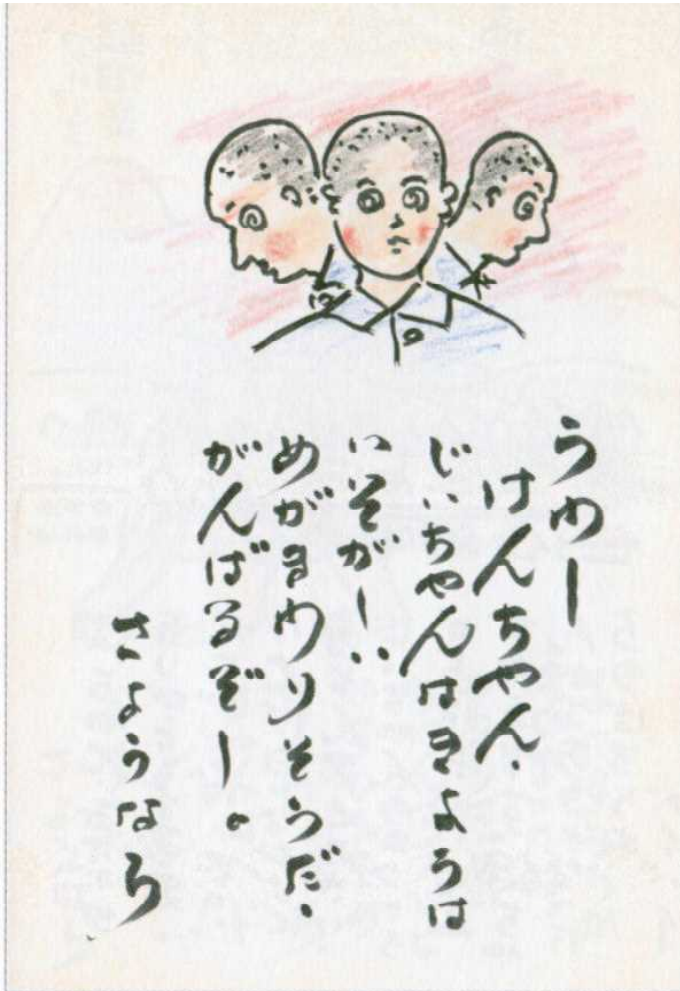 うわー
けんちゃん、
じいちゃんはきょうは
いそがーい
めがまわりそうだ、
がんばるぞー。
さようなら